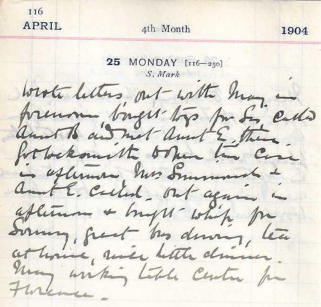 116
APRIL
4th Month
1904
25 MONDAY [116—250]
S. Mark
Wrote letters out with May in
forenoon bought toys for Sis, called
Aunt B and met Aunt E. there.
Got locksmith to open tin case
in afternoon Mrs Simmonds &
Aunt E. called. out again in
afternoon & bought whip for
Sonny, great bus driving, tea
at home, nice little dinner.
May working table centre for
Florence.